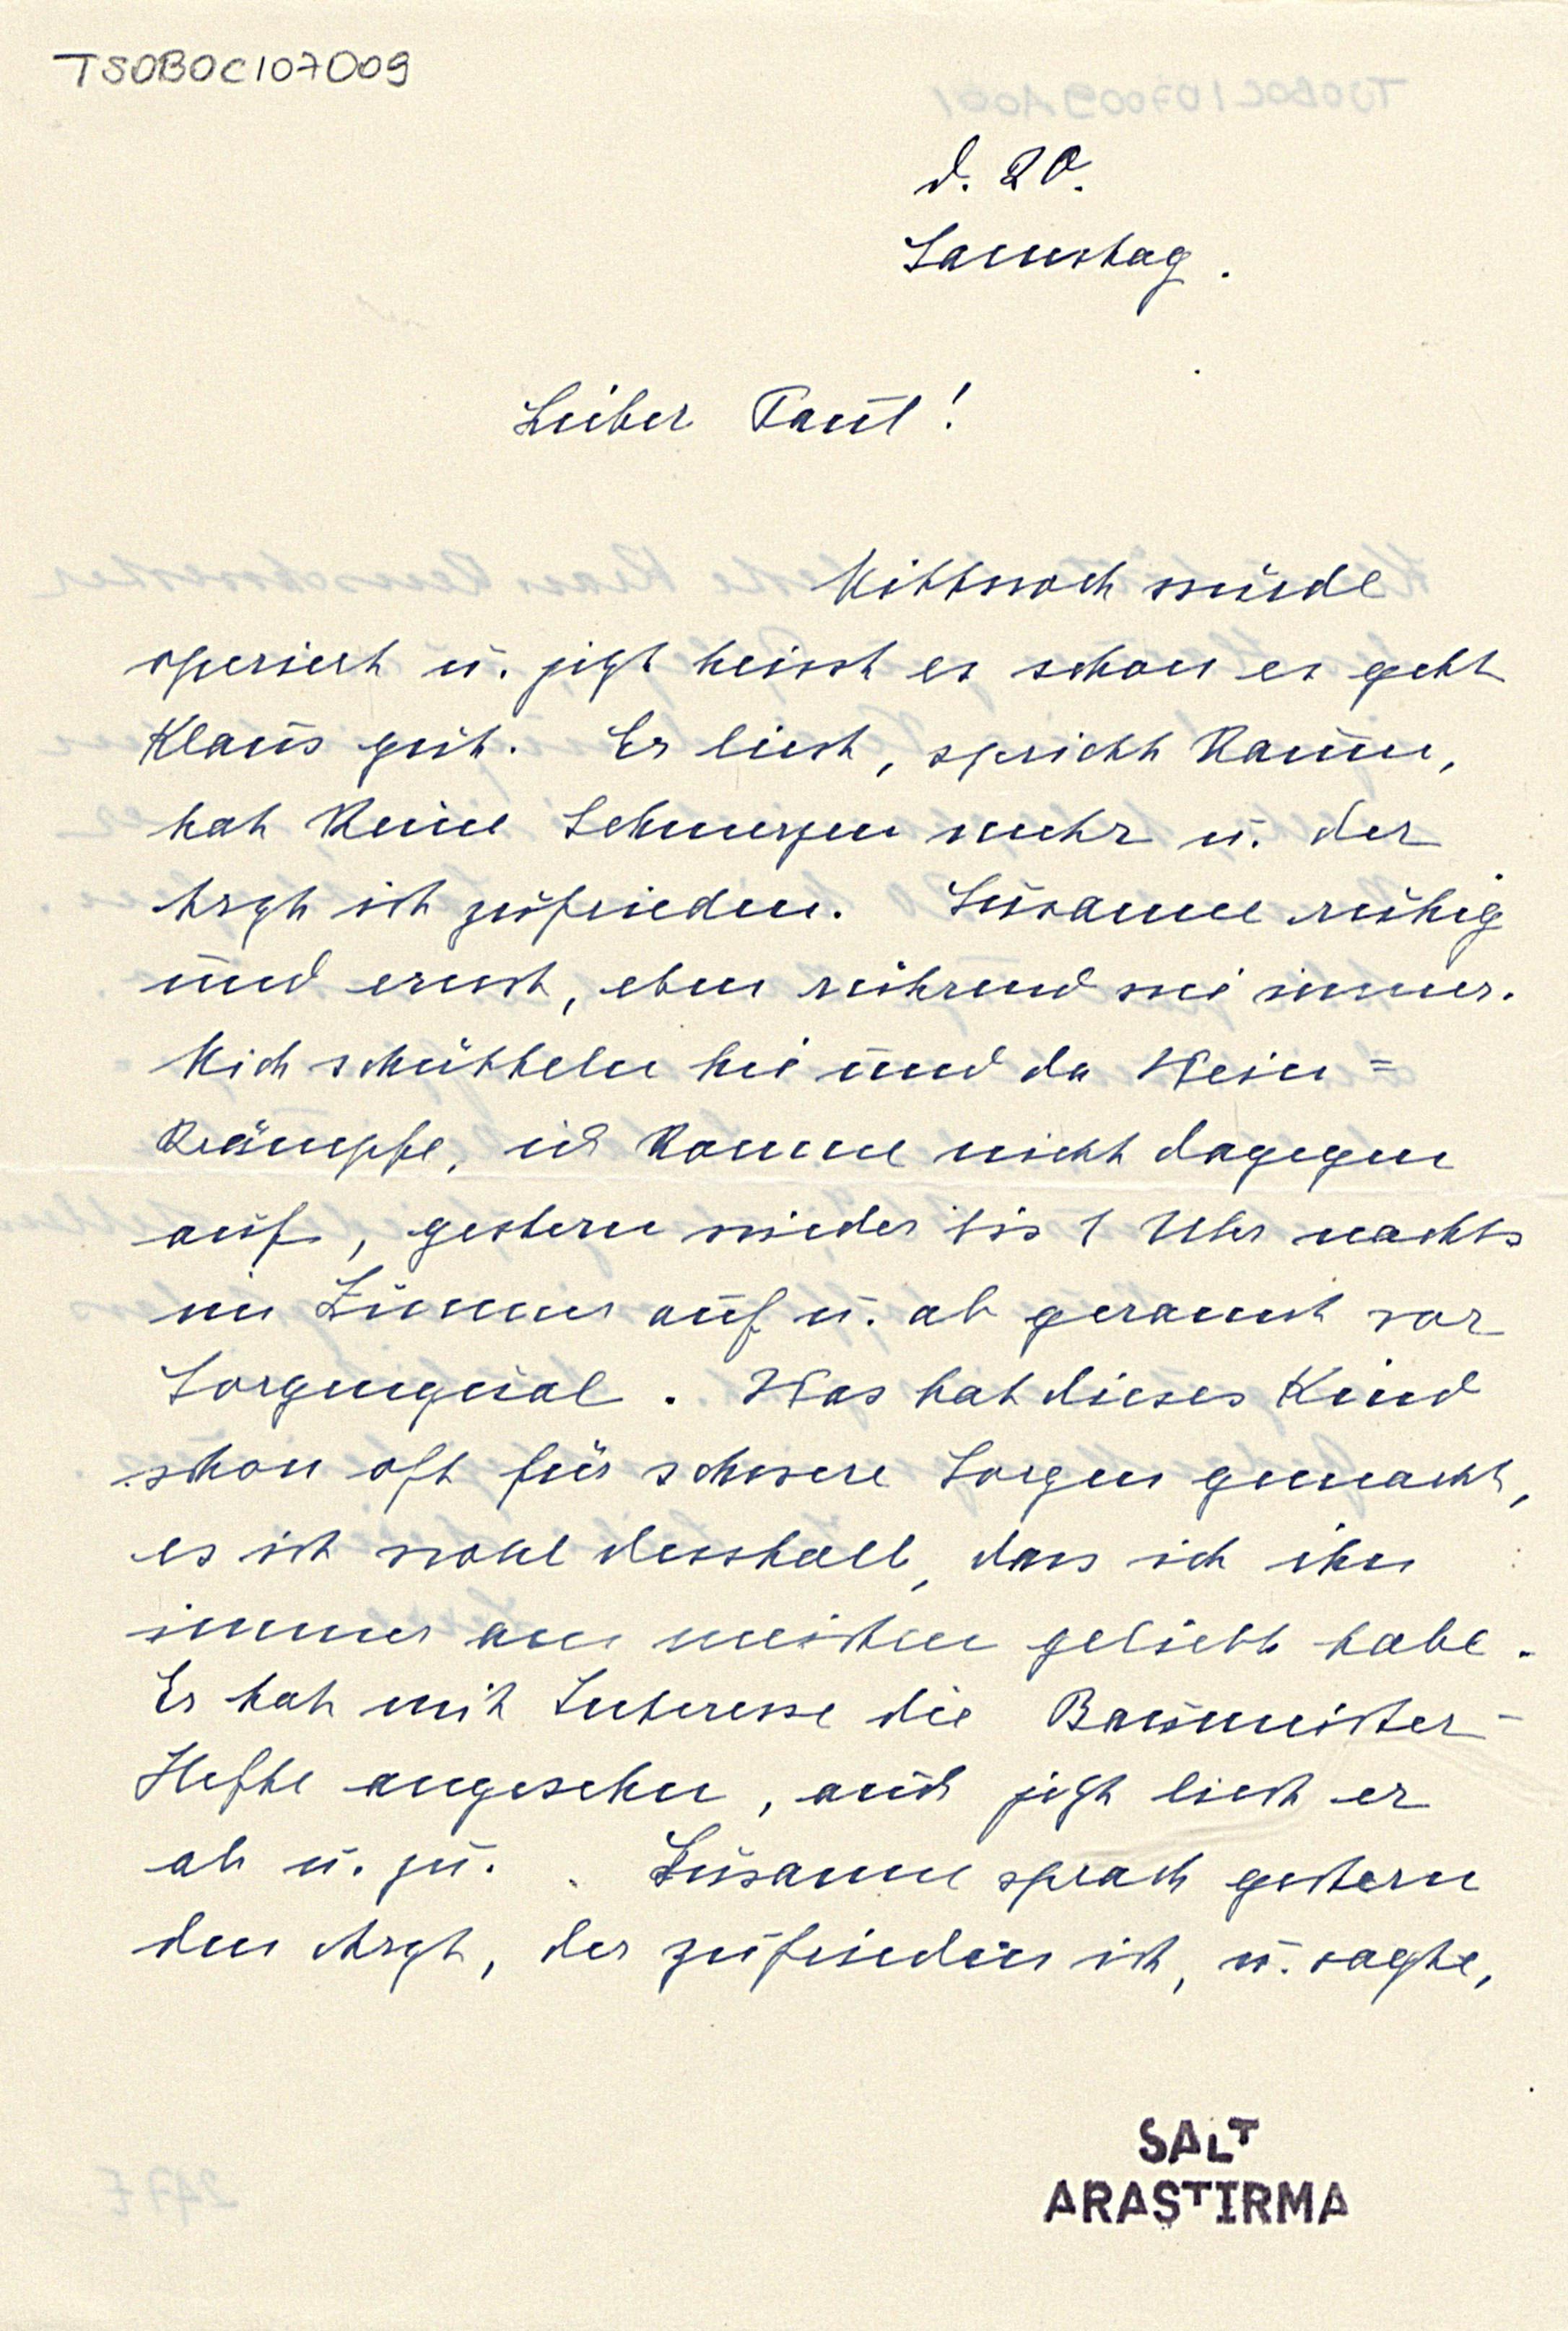 TSOBOC107009
d. 20.
Samstag.
Lieber Paul!
Mittwoch wurde
operiert u. jetzt heisst es schon es geht
Klaus gut. Er liest, spricht kaum,
hat keine Schmerzen mehr u. der
Arzt ist zufrieden. Susanne ruhig
und ernst, eben rührend wie immer.
Mich schütteln hie und da Wein=
krämpfe, ich komme nicht dagegen
auf, gestern wieder bis 1 Uhr nachts
im Zimmer auf u. ab gerannt vor
Sorgenqual. Was hat dieses Kind
schon oft für schwere Sorgen gemacht,
es ist wohl desshalb, dass ich ihn
immer am meisten geliebt habe.
Er hat mit Interesse die Baumeister-
Hefte angesehen, auch jetzt liest er
ab u. zu. Susanne sprach gestern
den Arzt, der zufrieden ist, u. sagte,
SALT
ARAŞTIRMA